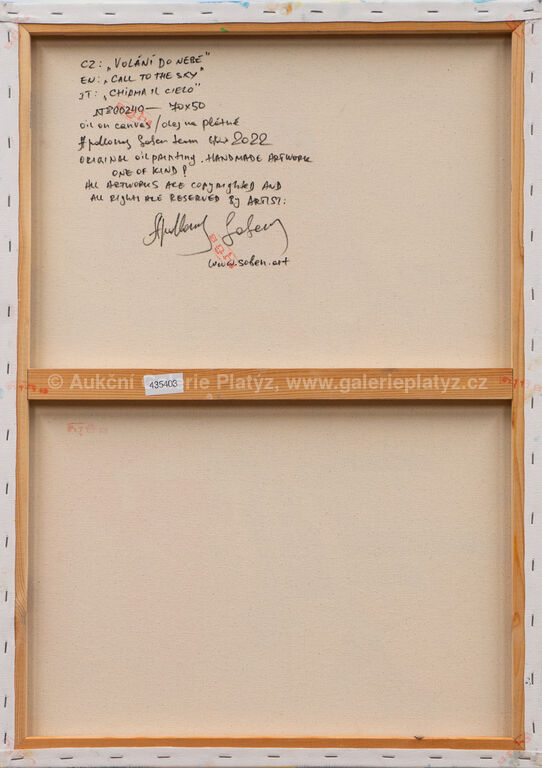 CZ: „VOLÁNÍ DO NEBE"
EN: „CALL TO THE SKY"
IT: „CHIAMA IL CIELO"
№00240 — 70x50
oil on canvas / olej na plátně
Apollonas Soben 2022
ORIGINAL OIL PAINTING. HANDMADE ARTWORK
ONE OF KIND!
ALL ARTWORKS ARE COPYRIGHTED AND
ALL RIGHTS ARE RESERVED By ARTIST:
Apollonas Soben
www.soben.art
© Aukční Galerie Platýz, www.galerieplatyz.cz
435403